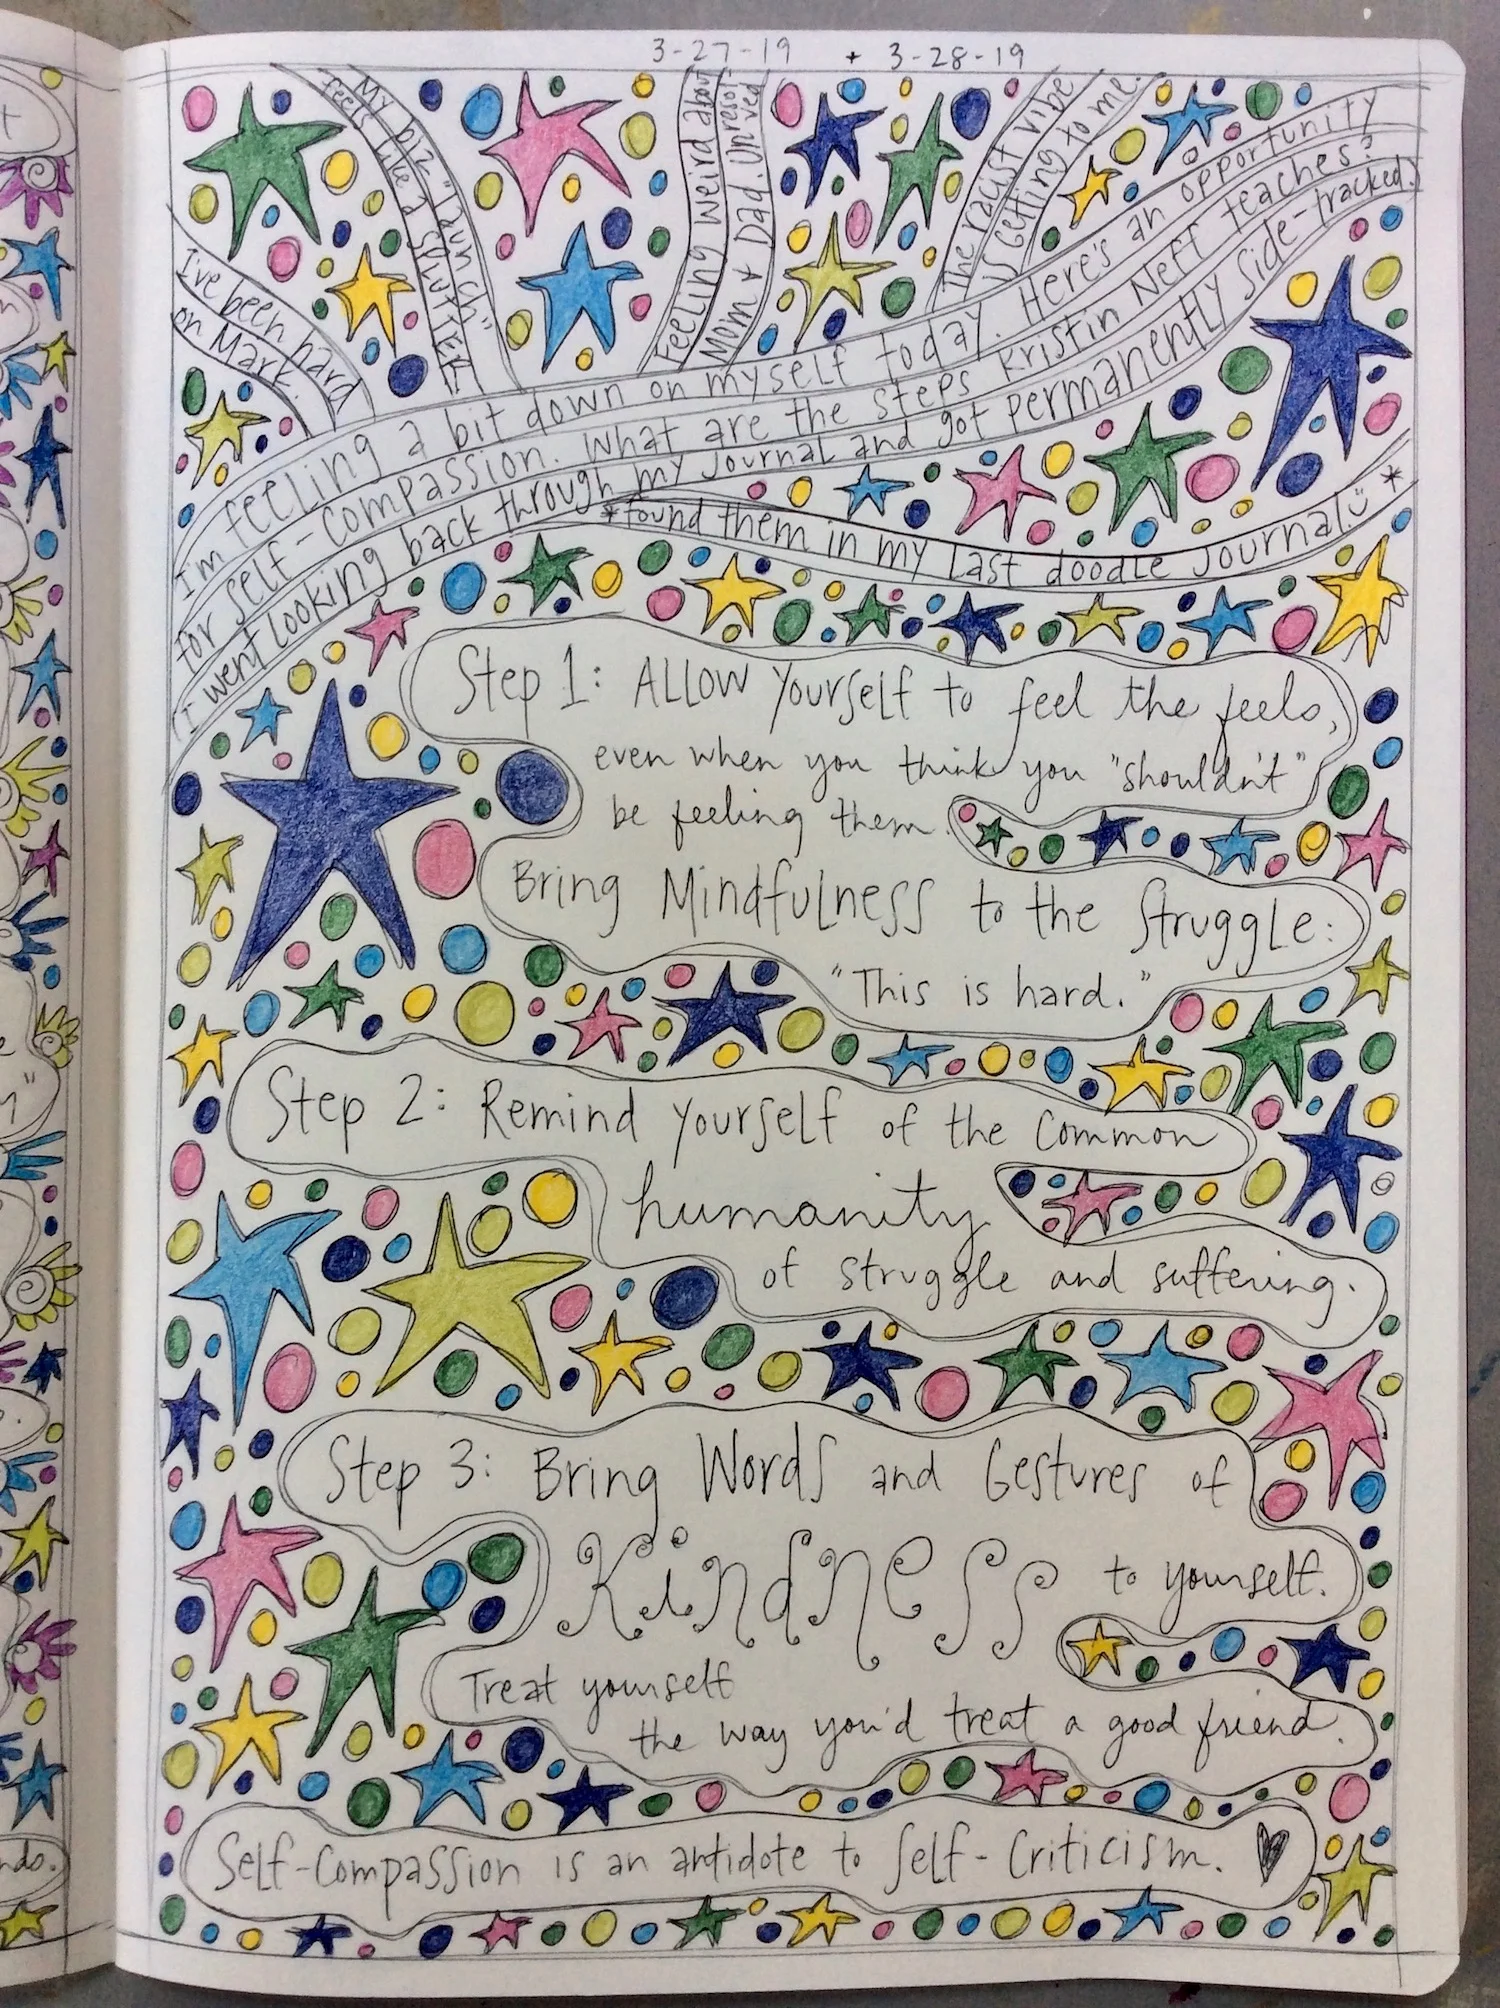 3-27-19 + 3-28-19
I've been hard
on Mark.
My biz "launch"
feels like a
sputter.
Feeling weird about
Mom + Dad. Unresol-
ved
The racist vibe
is getting to me.
I'm feeling a bit down on myself today. Here's an opportunity
for self-compassion. What are the steps Kristin Neff teaches?
(I went looking back through my journal and got permanently side-tracked.)
*found them in my last doodle journal.*
Step 1: Allow yourself to feel the feels,
even when you think you "shouldn't"
be feeling them.
Bring Mindfulness to the Struggle:
"This is hard."
Step 2: Remind yourself of the common
humanity
of struggle and suffering.
Step 3: Bring Words and Gestures of
Kindness to yourself.
Treat yourself
the way you'd treat a good friend.
Self-Compassion is an antidote to Self-Criticism.